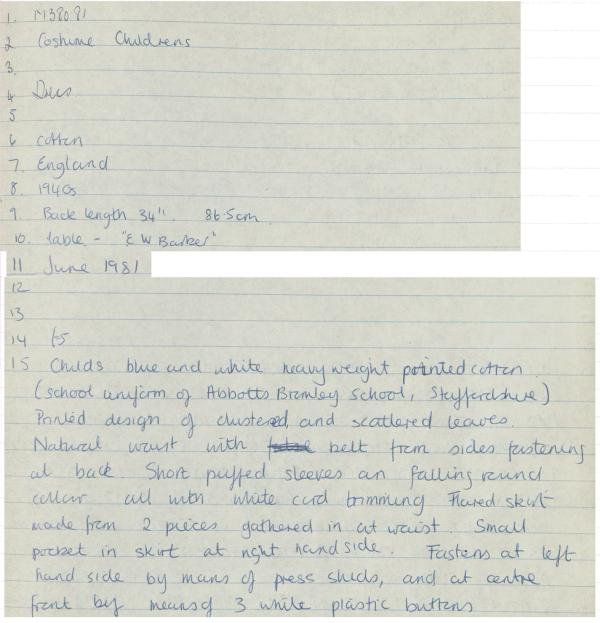 1. M38081
2 Costume Childrens
3.
4 Dress
5
6 cotton
7. England
8. 1940s
9. Back length 34". 86.5cm
10. lable - "E W Barker"
11 June 1981
12
13
14 f5
15 Childs blue and white heavy weight printed cotton.
(school uniform of Abbotts Bromley School, Staffordshire)
Printed design of clustered and scattered leaves.
Natural waist with belt from sides fastening
at back. Short puffed sleeves an falling round
collar all with white cord trimming Flared skirt
made from 2 pieces gathered in at waist. Small
pocket in skirt at right hand side. Fastens at left
hand side by mans of press studs, and at centre
front by means of 3 white plastic buttons